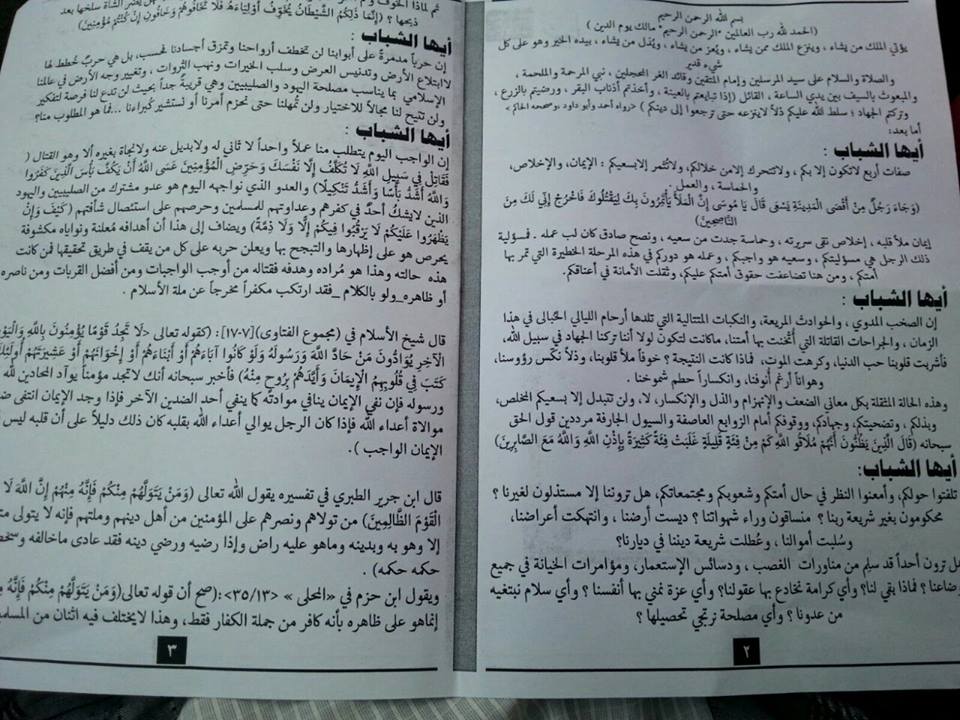 بسم الله الرحمن الرحيم
(الحمد لله رب العالمين * الرحمن الرحيم * مالك يوم الدين )
يؤتي الملك من يشاء ، وينزع الملك ممن يشاء ، ويُعز من يشاء ، ويُذل من يشاء ، بيده الخير وهو على كل
شيء قدير
والصلاة والسلام على سيد المرسلين وإمام المتقين وقائد الغر المحجلين ، نبي المرحمة والملحمة ،
والمبعوث بالسيف بين يدي الساعة ، القائل (إذا تبايعتم بالعينة ، وأخذتم أذناب البقر ، ورضيتم بالزرع ،
وتركتم الجهاد ؛ سلط الله عليكم ذلاً لاينزعه حتى ترجعوا إلى دينكم ) <رواه أحمد وأبو داود وصححه الحاكم>
أما بعد:
أيها الشباب :
صفات أربع لاتكون إلا بكم ، ولاتتحرك إلامن خلالكم، ولاتثمر إلابسعيكم : الإيمان، والإخلاص،
والحماسة ، والعمل
(وَجَاءَ رَجُلٌ مِنْ أَقْصَى الْمَدِينَةِ يَسْعَى قَالَ يَا مُوسَى إِنَّ الْمَلَأَ يَأْتَمِرُونَ بِكَ لِيَقْتُلُوكَ فَاخْرُجْ إِنِّي لَكَ مِنَ
النَّاصِحِينَ)
إيمان ملأ قلبه ، إخلاص نقى سريرته ، وحماسة جدت من سعيه ، ونصح صادق كان لب عمله . فمسؤلية
ذلك الرجل هي مسؤليتكم ، وسعيه هو واجبكم ، وعمله هو دوركم في هذه المرحلة الخطيرة التي تمر بها
أمتكم ، ومن هنا تضاعفت حقوق أمتكم عليكم، وثقلت الأمانة في أعناقكم.
أيها الشباب :
إن الصخب المدوي ، والحوادث المريعة، والنكبات المتتالية التي تلدها أرحام الليالي الحبالى في هذا
الزمان ، والجراحات القاتلة التي أُثخنت بها أمتنا، ماكانت لتكون لولا أننا تركنا الجهاد في سبيل الله،
فأشربت قلوبنا حب الدنيا، وكرهت الموت، فماذا كانت النتيجة ؟ خوفاً ملأ قلوبنا، وذلاً نكّس رؤوسنا،
وهواناً أرغم أنوفنا، وانكساراً حطم شموخنا .
وهذه الحالة المثقلة بكل معاني الضعف والإنهزام والذل والإنكسار، لا، ولن تتبدل إلا بسعيكم المخلص،
وبذلكم ، وتضحيتكم، وجهادكم، ووقوفكم أمام الزوابع العاصفة والسيول الجارفة مرددين قول الحق
سبحانه (قَالَ الَّذِينَ يَظُنُّونَ أَنَّهُمْ مُلَاقُو اللَّهِ كَمْ مِنْ فِئَةٍ قَلِيلَةٍ غَلَبَتْ فِئَةً كَثِيرَةً بِإِذْنِ اللَّهِ وَاللَّهُ مَعَ الصَّابِرِينَ)
أيها الشباب:
تلفتوا حولكم، وأمعنوا النظر في حال أمتكم وشعوبكم ومجتمعاتكم، هل تروننا إلا مستذلون لغيرنا ؟
محكومون بغير شريعة ربنا ؟ منساقون وراء شهواتنا ؟ ديست أرضنا ، وانتهكت أعراضنا،
وسُلبت أموالنا ، وعُطلت شريعة ديننا في ديارنا؟
هل ترون أحداً قد سلِم من مناورات الغصب ، ودسائس الإستعمار، ومؤامرات الخيانة في جميع
وضاعنا ؟ فماذا بقي لنا؟ وأي كرامة نخادع بها عقولنا؟ وأي عزة نمني بها أنفسنا ؟ وأي سلام نبتغيه
من عدونا ؟ وأي مصلحة نرتجي تحصيلها ؟
٢
ثم لماذا الخوف
يضر الشاة سلخها بعد
ذبحها ؟ (إِنَّمَا ذَلِكُمُ الشَّيْطَانُ يُخَوِّفُ أَوْلِيَاءَهُ فَلَا تَخَافُوهُمْ وَخَافُونِ إِنْ كُنْتُمْ مُؤْمِنِينَ)
أيها الشباب :
إن حرباً مدمرةً على أبوابنا لن تخطف أرواحنا وتمزق أجسادنا فحسب، بل هي حربٌ خُطط لها
لابتلاع الأرض وتدنيس العرض وسلب الخيرات ونهب الثروات ، وتغيير وجه الأرض في عالمنا
الإسلامي بما يناسب مصلحة اليهود والصليبيين وهي قريبةً جداً بحيث لن تدع لنا فرصة لتفكير
ولن تتيح لنا مجالاً للاختيار ولن تُمهلنا حتى نحزم أمرنا أو نستشير كبراءنا ...فما هو المطلوب منا؟
أيها الشباب :
إن الواجب اليوم يتطلب منا عملاً واحداً لا ثاني له ولابديل عنه ولانجاة بغيره ألا وهو القتال (
فَقَاتِلْ فِي سَبِيلِ اللَّهِ لَا تُكَلَّفُ إِلَّا نَفْسَكَ وَحَرِّضِ الْمُؤْمِنِينَ عَسَى اللَّهُ أَنْ يَكُفَّ بَأْسَ الَّذِينَ كَفَرُوا
وَاللَّهُ أَشَدُّ بَأْسًا وَأَشَدُّ تَنْكِيلًا) والعدو الذي نواجهه اليوم هو عدو مشترك من الصليبيين واليهود
الذين لايشك أحدٌ في كفرهم وعداوتهم للمسلمين وحرصهم على استئصال شأفتهم (كَيْفَ وَإِنْ
يَظْهَرُوا عَلَيْكُمْ لَا يَرْقُبُوا فِيكُمْ إِلًّا وَلَا ذِمَّةً) ويضاف إلى هذا أن أهدافه مُعلنة ونواياه مكشوفة
يحرص هو على إظهارها والتبجح بها ويعلن حربه على كل من يقف في طريق تحقيقها فمن كانت
هذه حالته وهذا هو مُراده وهدفه فقتاله من أوجب الواجبات ومن أفضل القربات ومن ناصره
أو ظاهره_ولو بالكلام_فقد ارتكب مكفراً مخرجاً عن ملة الأسلام .
قال شيخ الأسلام في (مجموع الفتاوى)[٧-١٧]: (كقوله تعالى <لَا تَجِدُ قَوْمًا يُؤْمِنُونَ بِاللَّهِ وَالْيَوْمِ
الْآخِرِ يُوَادُّونَ مَنْ حَادَّ اللَّهَ وَرَسُولَهُ وَلَوْ كَانُوا آبَاءَهُمْ أَوْ أَبْنَاءَهُمْ أَوْ إِخْوَانَهُمْ أَوْ عَشِيرَتَهُمْ أُولَئِكَ
كَتَبَ فِي قُلُوبِهِمُ الْإِيمَانَ وَأَيَّدَهُمْ بِرُوحٍ مِنْهُ) فأخبر سبحانه أنك لاتجد مؤمناً يوآد المحادين لله
ورسوله فإن نفي الإيمان ينافي موادته كما ينفي أحد الضدين الآخر فإذا وجد الإيمان انتفى ضد
موالاة أعداء الله فإذا كان الرجل يوالي أعداء الله بقلبه كان ذلك دليلاً على أن قلبه ليس
الإيمان الواجب ).
قال ابن جرير الطبري في تفسيره يقول الله تعالى (وَمَنْ يَتَوَلَّهُمْ مِنْكُمْ فَإِنَّهُ مِنْهُمْ إِنَّ اللَّهَ لَا
الْقَوْمَ الظَّالِمِينَ) من تولاهم ونصرهم على المؤمنين من أهل دينهم وملتهم فإنه لا يتولى
إلا وهو به وبدينه وماهو عليه راض وإذا رضيه ورضي دينه فقد عادى ماخالفه وسخط
حكمه حكمه) .
ويقول ابن حزم في «المحلى » <٣٥/١٣>:(صح أن قوله تعالى(وَمَنْ يَتَوَلَّهُمْ مِنْكُمْ فَإِنَّهُ
إنماهو على ظاهره بأنه كافر من جملة الكفار فقط، وهذا لايختلف فيه اثنان من
٣